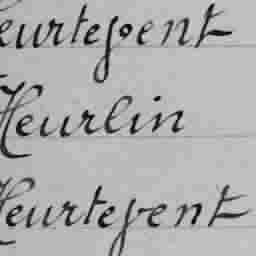 eurtepent
Heurlin
Heurtepent